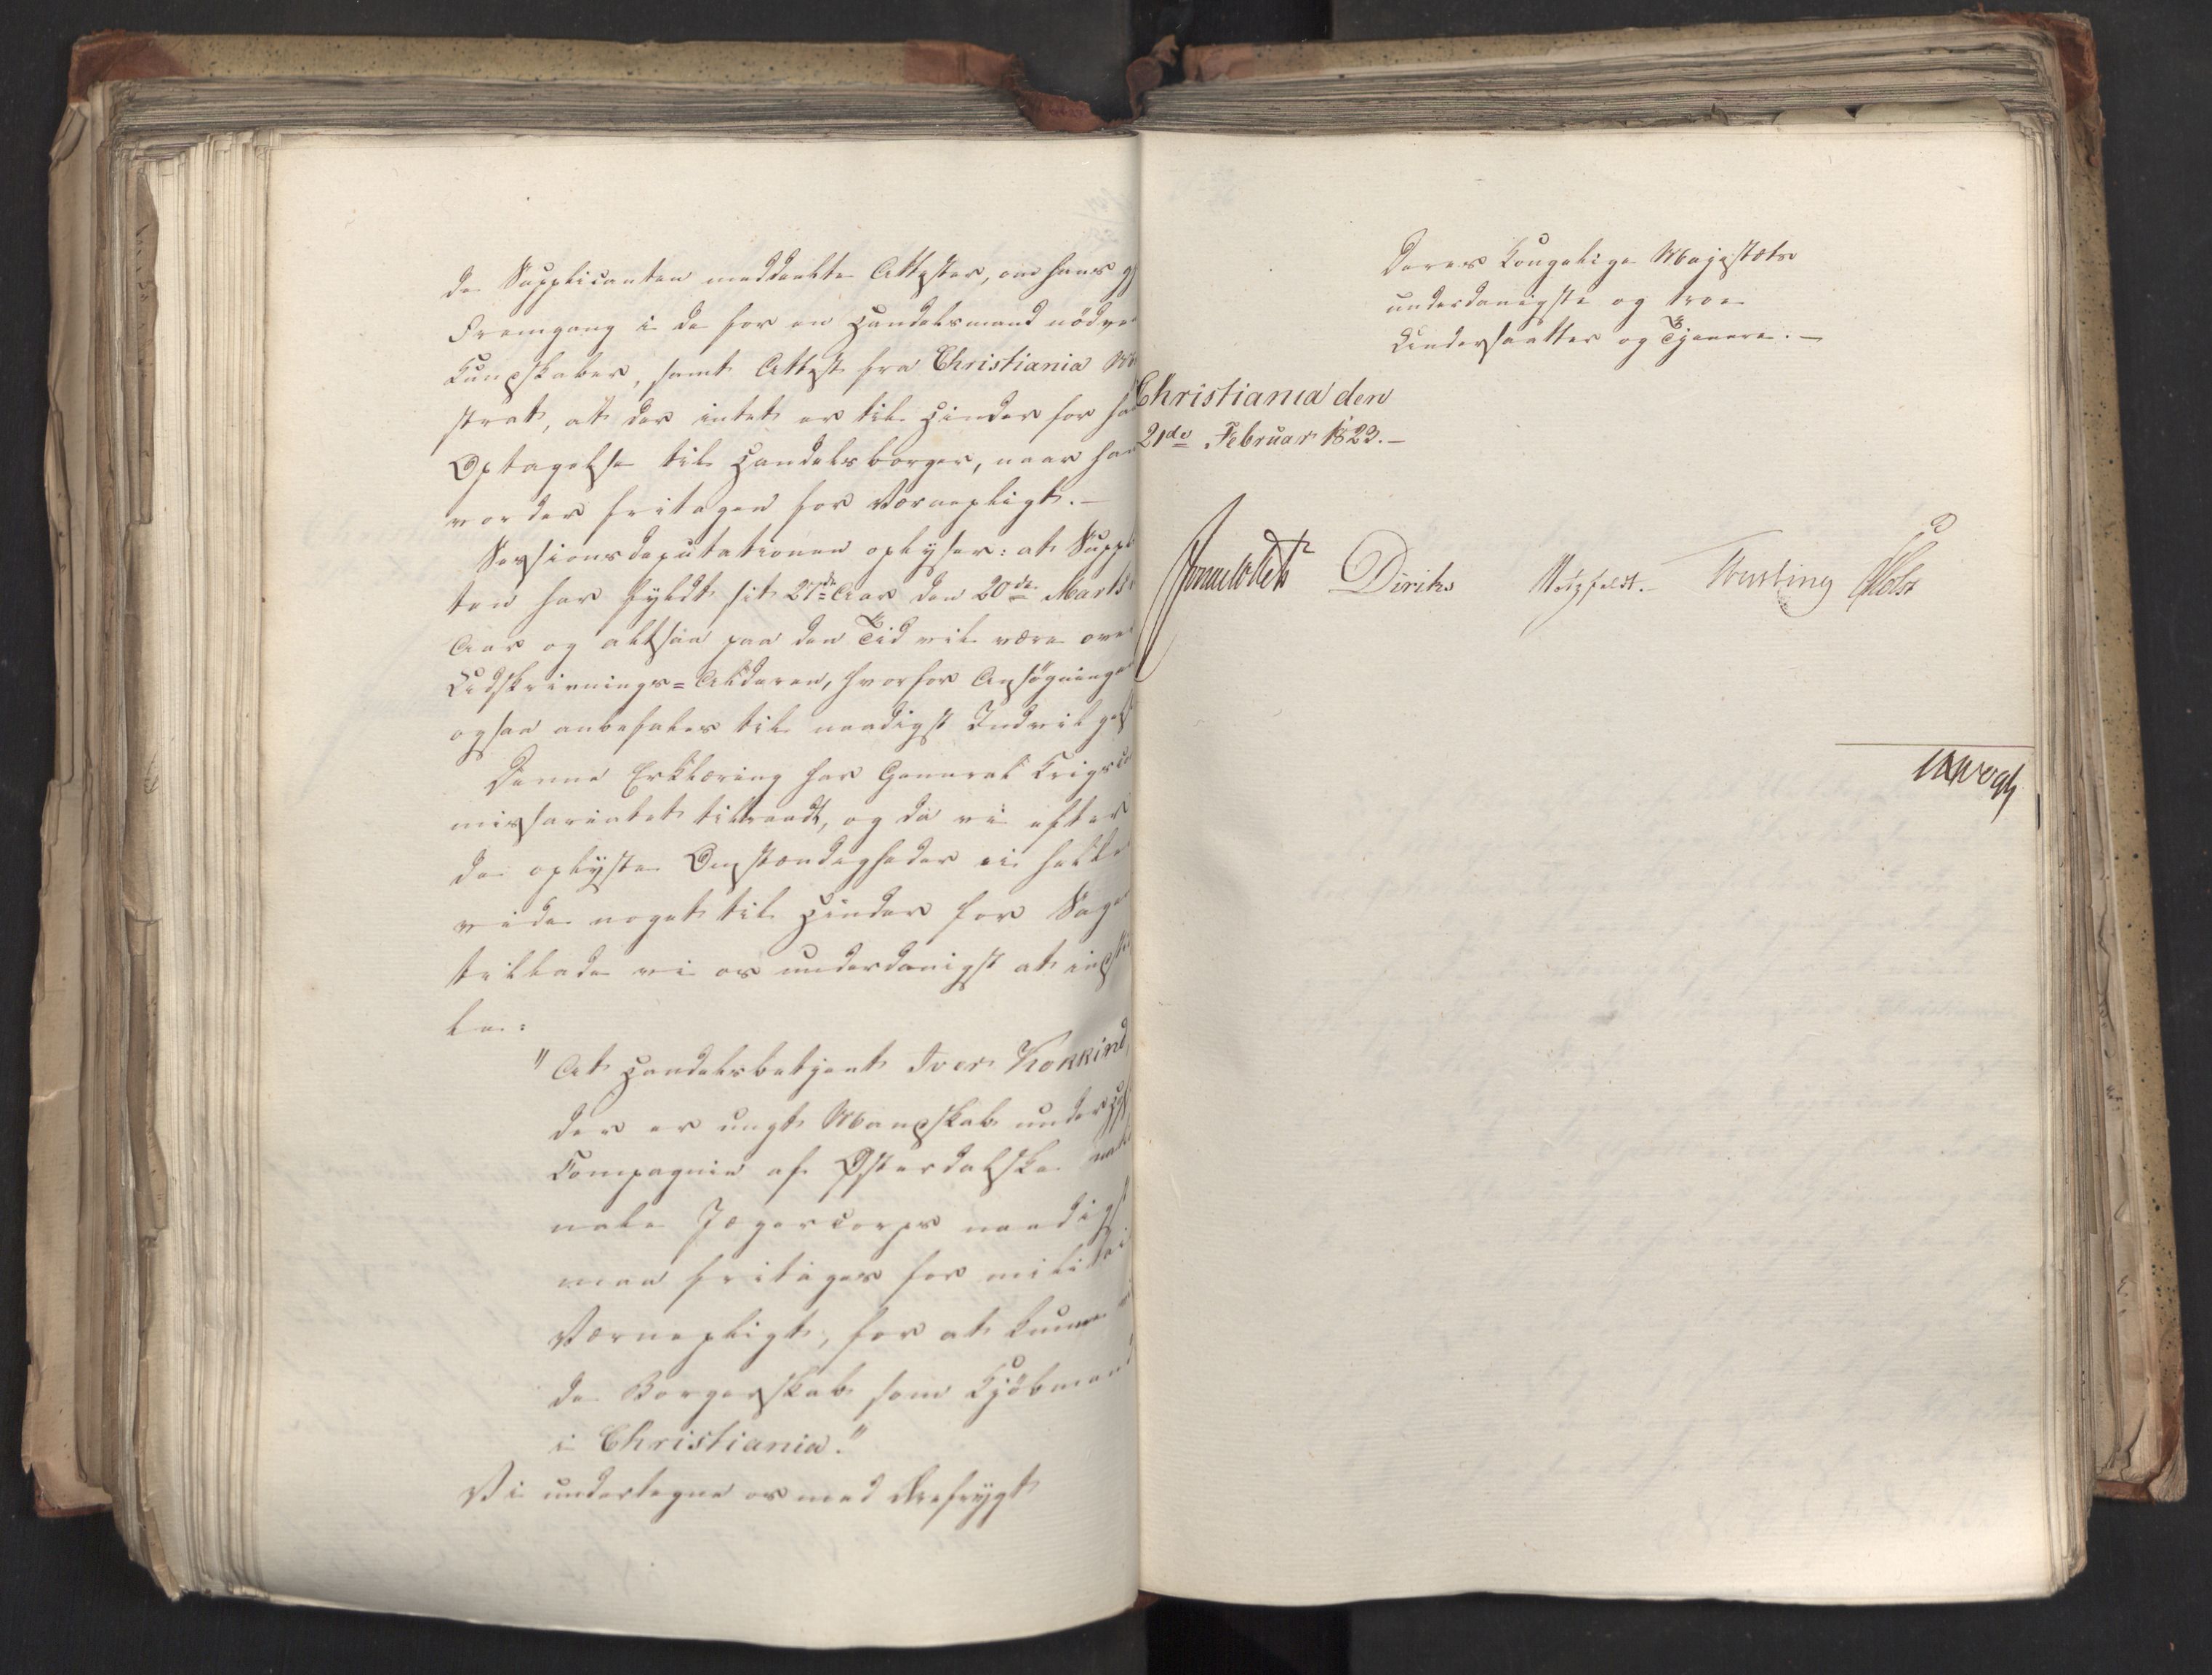 de Supplicanten meddeelte Attester, om hans g
Fremgang i de for en Handelsmand nödve
Kundskaber, samt Attest fra Christiania Ma
strat, at der intet er til Hinder for ha
Optagelse til Handelsborger, naar han
vorder fritagen for Værnepligt.—
Sessionsdeputationen oplyser: at Suppl
ten har fyldt sit 27de Aar den 20de Marts
Aar og altsaa paa den Tid vil være over
Udskrivnings=Alderen, hvorfor Ansögningen
ogsaa anbefales til naadigst Indvilgels
Denne Erklæring har General Krigsco
missariatet tiltraadt, og da vi efter
de oplyste Omstændigheder ei heller
vide noget til Hinder for Sagen
tillade vi os underdanigst at indstil
le:
"At Handelsbetjent Iver Kokkind,
der er ungt Mandskab under
Compagnie af Østerdalske natio
nale Jægercorps naadigst
maa fritages for militair
Værnepligt, for at kunne
de Borgerskab som Kjöbmand
i Christiania."
Vi undertegne os med Ærefrygt
Deres Kongelige Majestæts
underdanigste og troe
Undersaatter og Tjenere.—
Christiania den
21de Februar 1823.—
Sommerhielm Diriks Motzfeldt.— Treschow Holst
Vogt